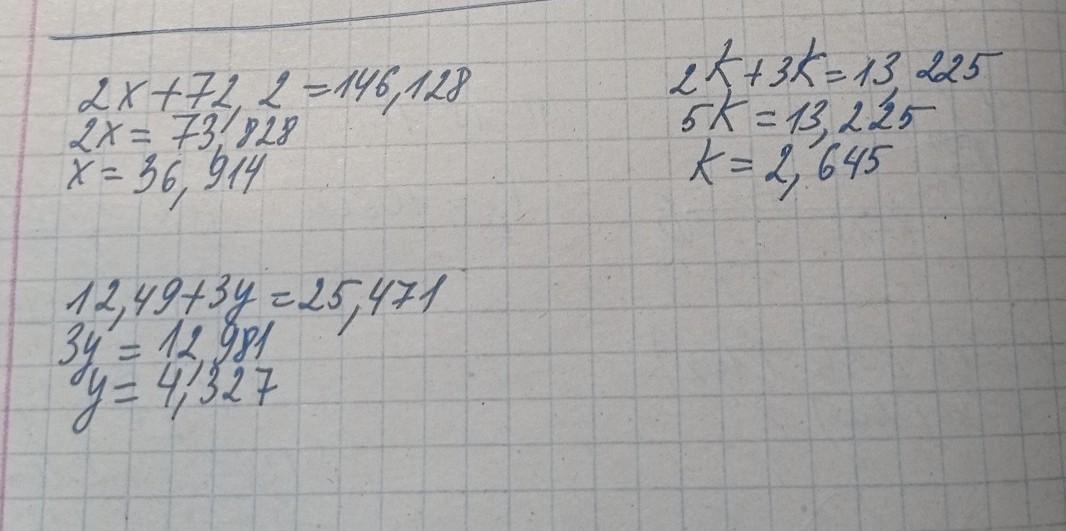 2x+72,2=146,128
2x=73,828
x=36,914
2k+3k=13,225
5k=13,225
k=2,645
12,49+3y=25,471
3y=12,981
y=4,327